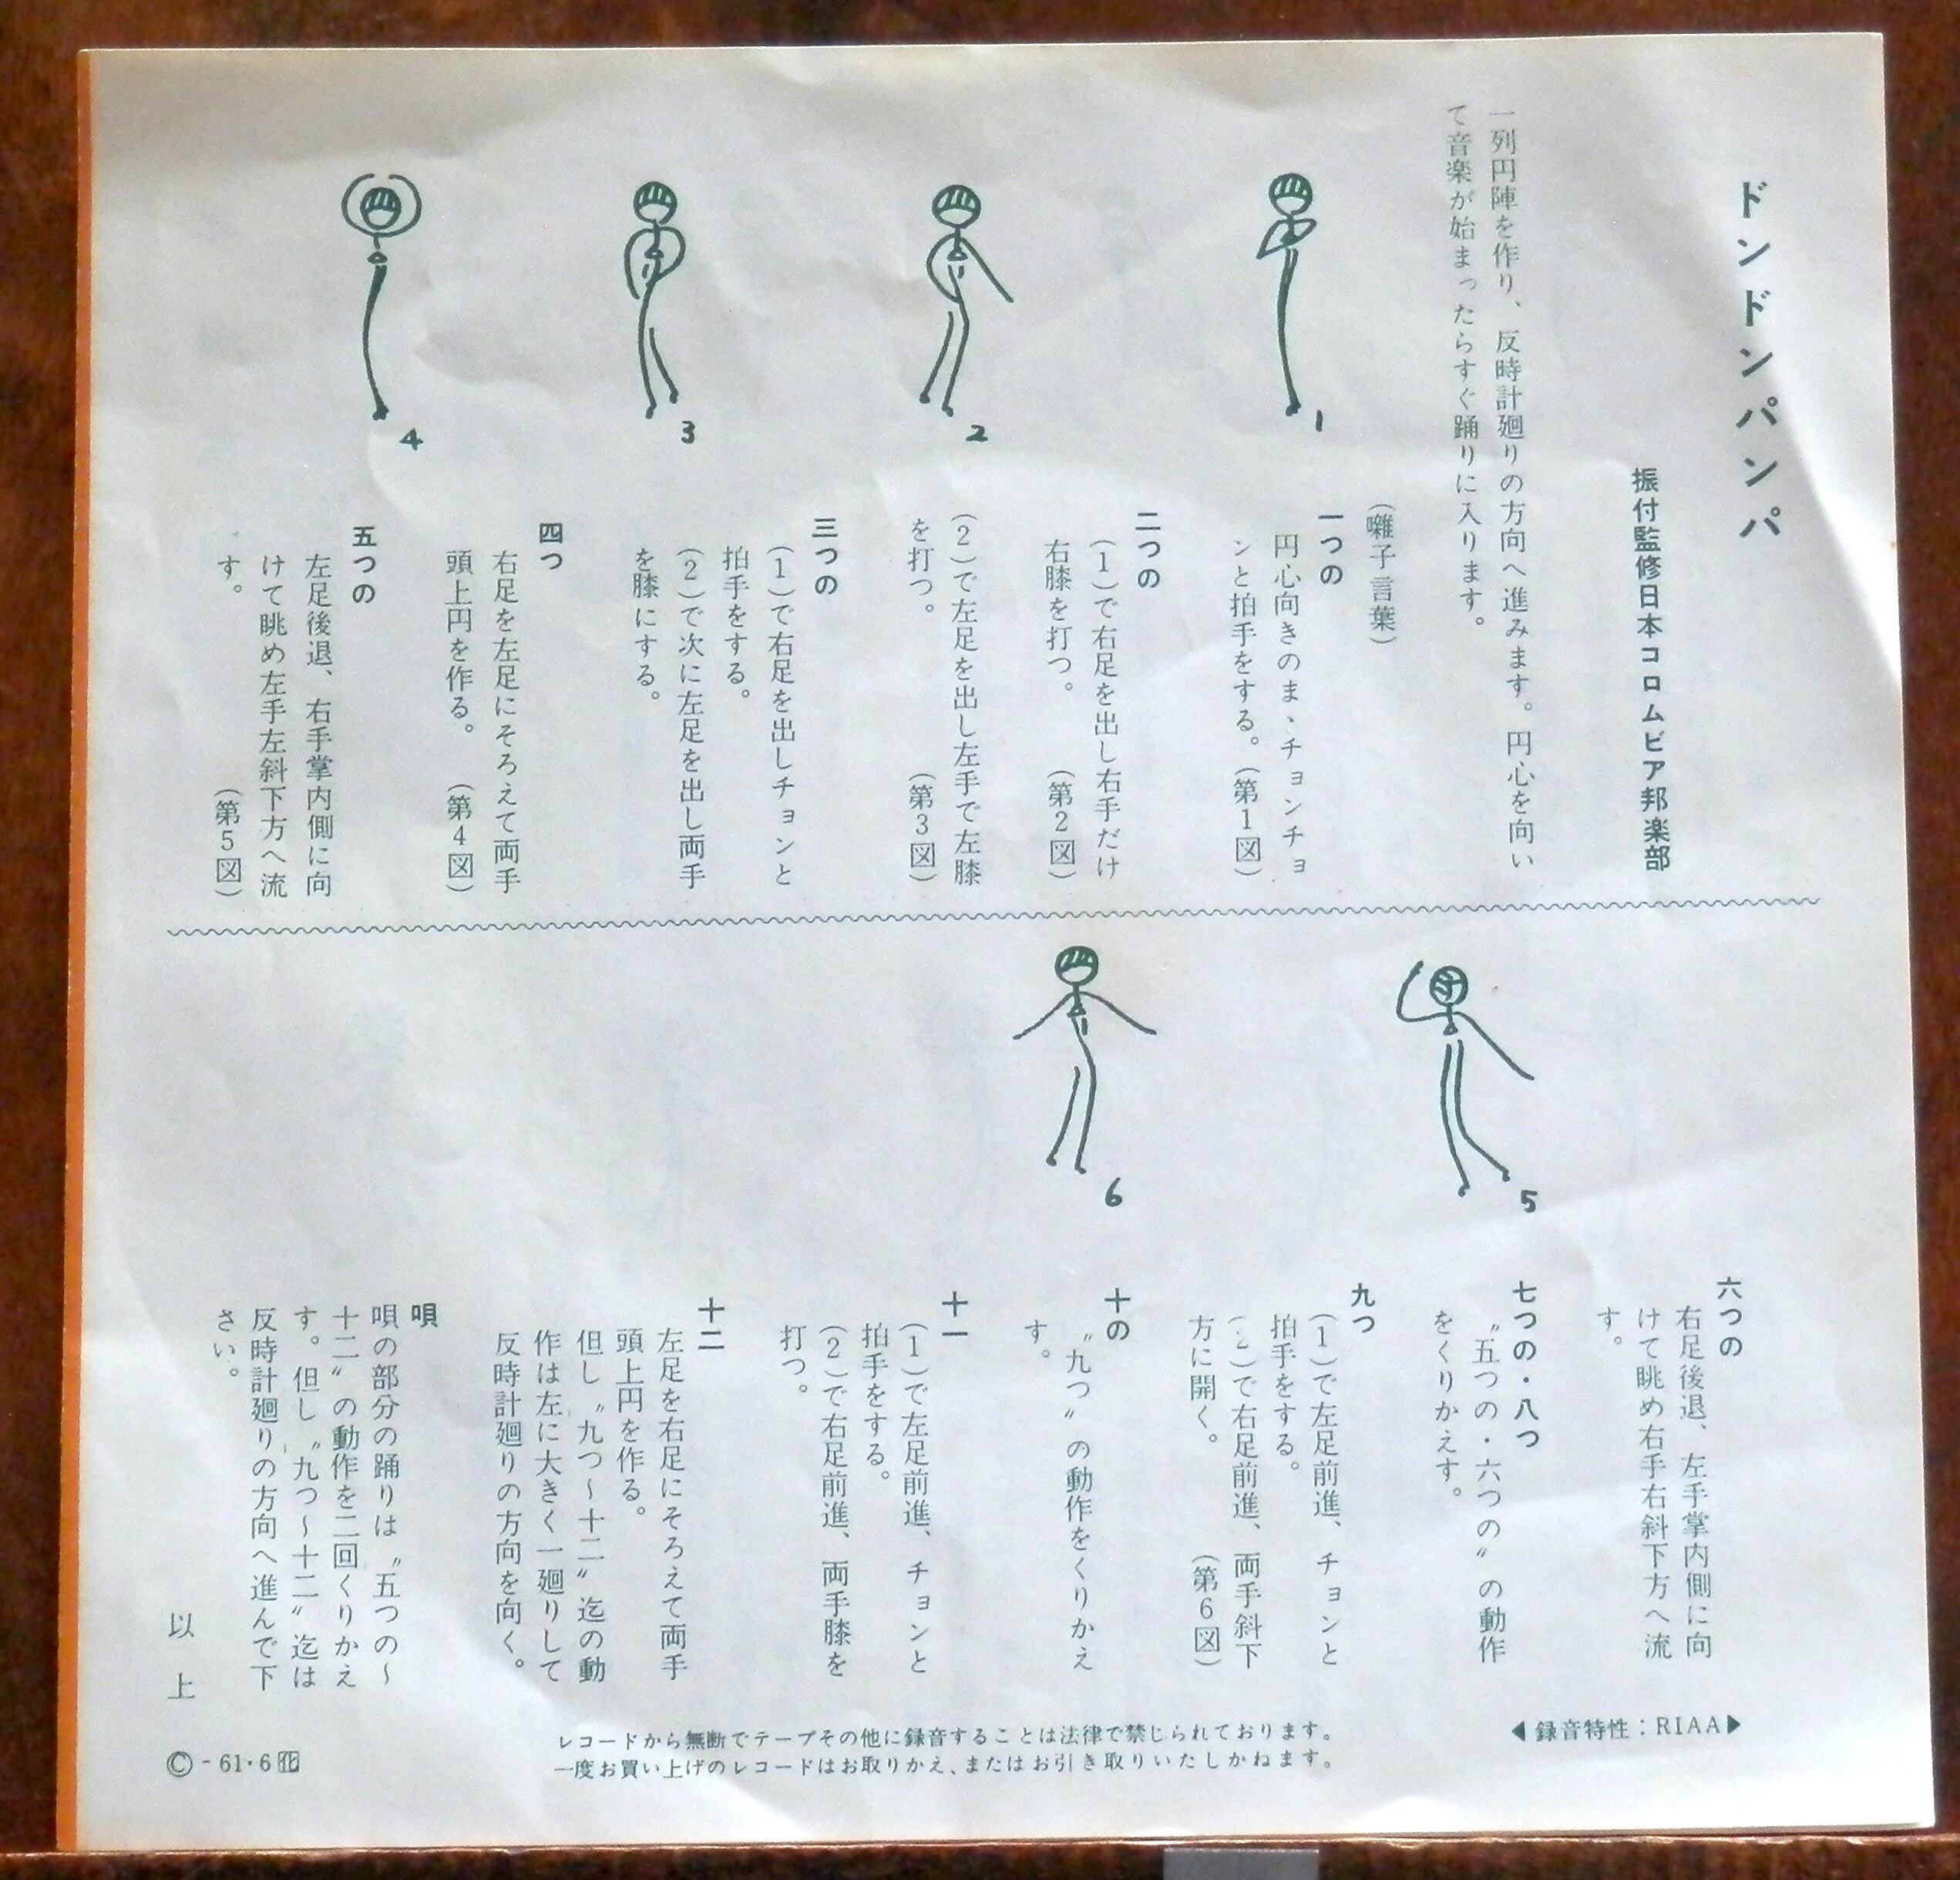 ドンドンパンパ
振付監修日本コロムビア邦楽部
一列円陣を作り、反時計廻りの方向へ進みます。円心を向い
て音楽が始まったらすぐ踊りに入ります。
(囃子言葉)
一つの
円心向きのまゝチョンチョ
ンと拍手をする。(第1図)
二つの
(1)で右足を出し右手だけ
右膝を打つ。(第2図)
(2)で左足を出し左手で左膝
を打つ。(第3図)
三つの
(1)で右足を出しチョンと
拍手をする。
(2)で次に左足を出し両手
を膝にする。
四つ
右足を左足にそろえて両手
頭上円を作る。(第4図)
五つの
左足後退、右手掌内側に向
けて眺め左手左斜下方へ流
す。(第5図)
1
2
3
4
六つの
右足後退、左手掌内側に向
けて眺め右手右斜下方へ流
す。
七つの・八つ
〝五つの・六つの〟の動作
をくりかえす。
九つ
(1)で左足前進、チョンと
拍手をする。
(2)で右足前進、両手斜下
方に開く。(第6図)
十の
〝九つ〟の動作をくりかえ
す。
十一
(1)で左足前進、チョンと
拍手をする。
(2)で右足前進、両手膝を
打つ。
十二
左足を右足にそろえて両手
頭上円を作る。
但し〝九つ～十二〟迄の動
作は左に大きく一廻りして
反時計廻りの方向を向く。
唄
唄の部分の踊りは〝五つの～
十二〟の動作を二回くりかえ
す。但し〝九つ～十二〟迄は
反時計廻りの方向へ進んで下
さい。
以上
5
6
◀録音特性：RIAA▶
レコードから無断でテープその他に録音することは法律で禁じられております。
一度お買い上げのレコードはお取りかえ、またはお引き取りいたしかねます。
©-61・6